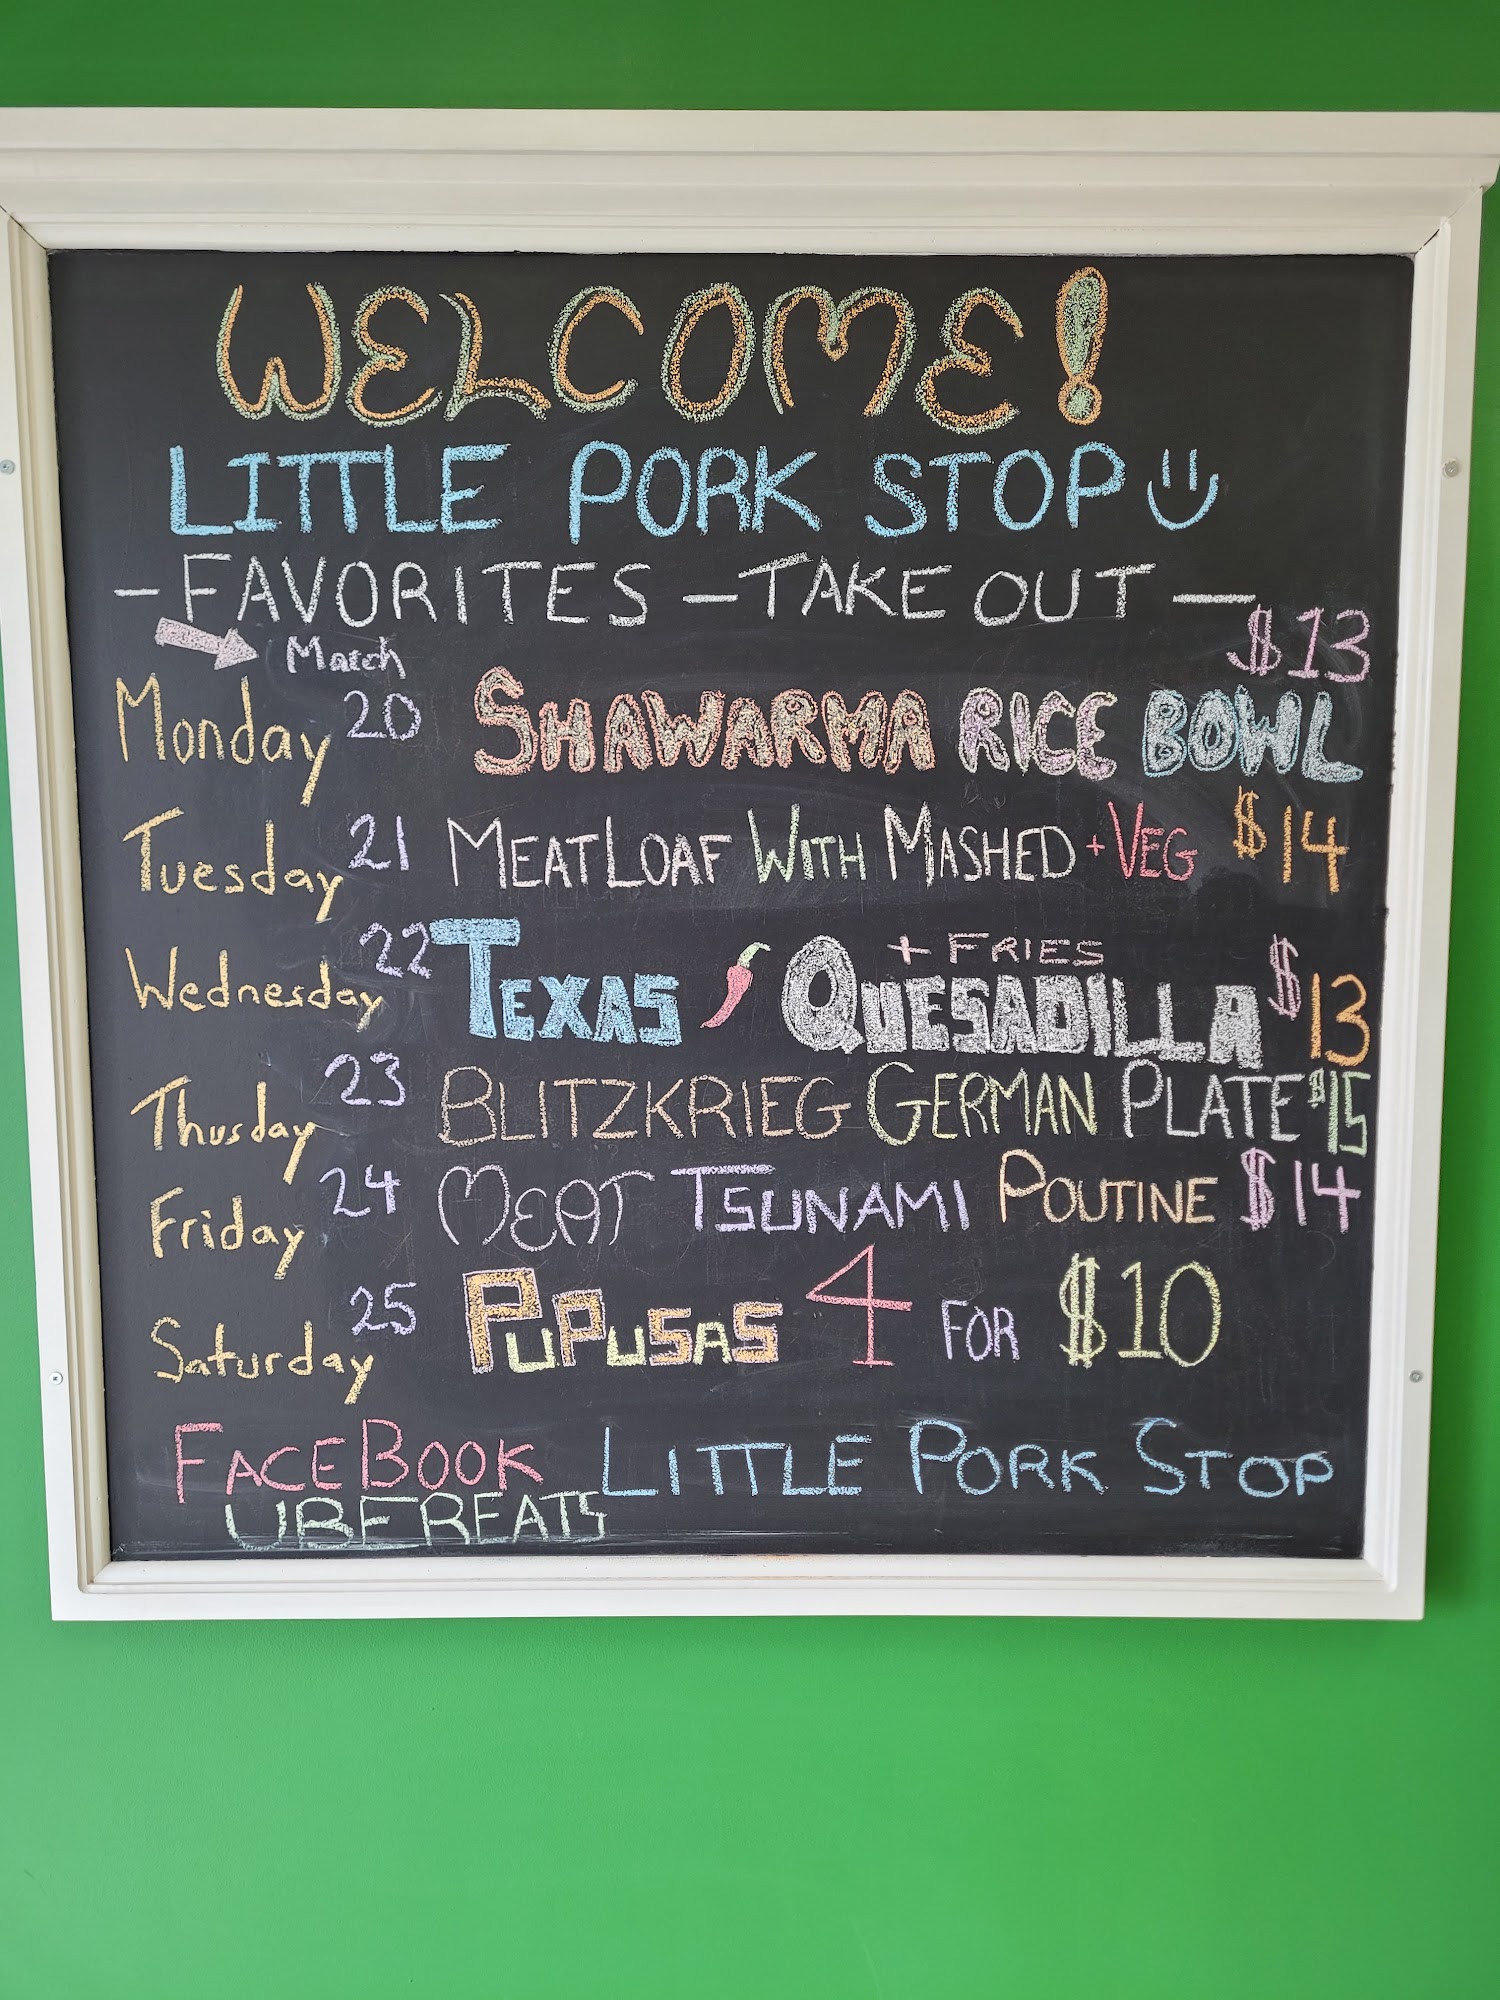 WELCOME!
LITTLE PORK STOP
- FAVORITES - TAKE OUT -
March
Monday 20 SHAWARMA RICE BOWL $13
Tuesday 21 MEATLOAF WITH MASHED + VEG $14
Wednesday 22 TEXAS QUESADILLA + FRIES $13
Thusday 23 BLITZKRIEG GERMAN PLATE $15
Friday 24 MEAT TSUNAMI POUTINE $14
Saturday 25 PUPUSAS 4 FOR $10
FACEBOOK LITTLE PORK STOP
UBEREATS